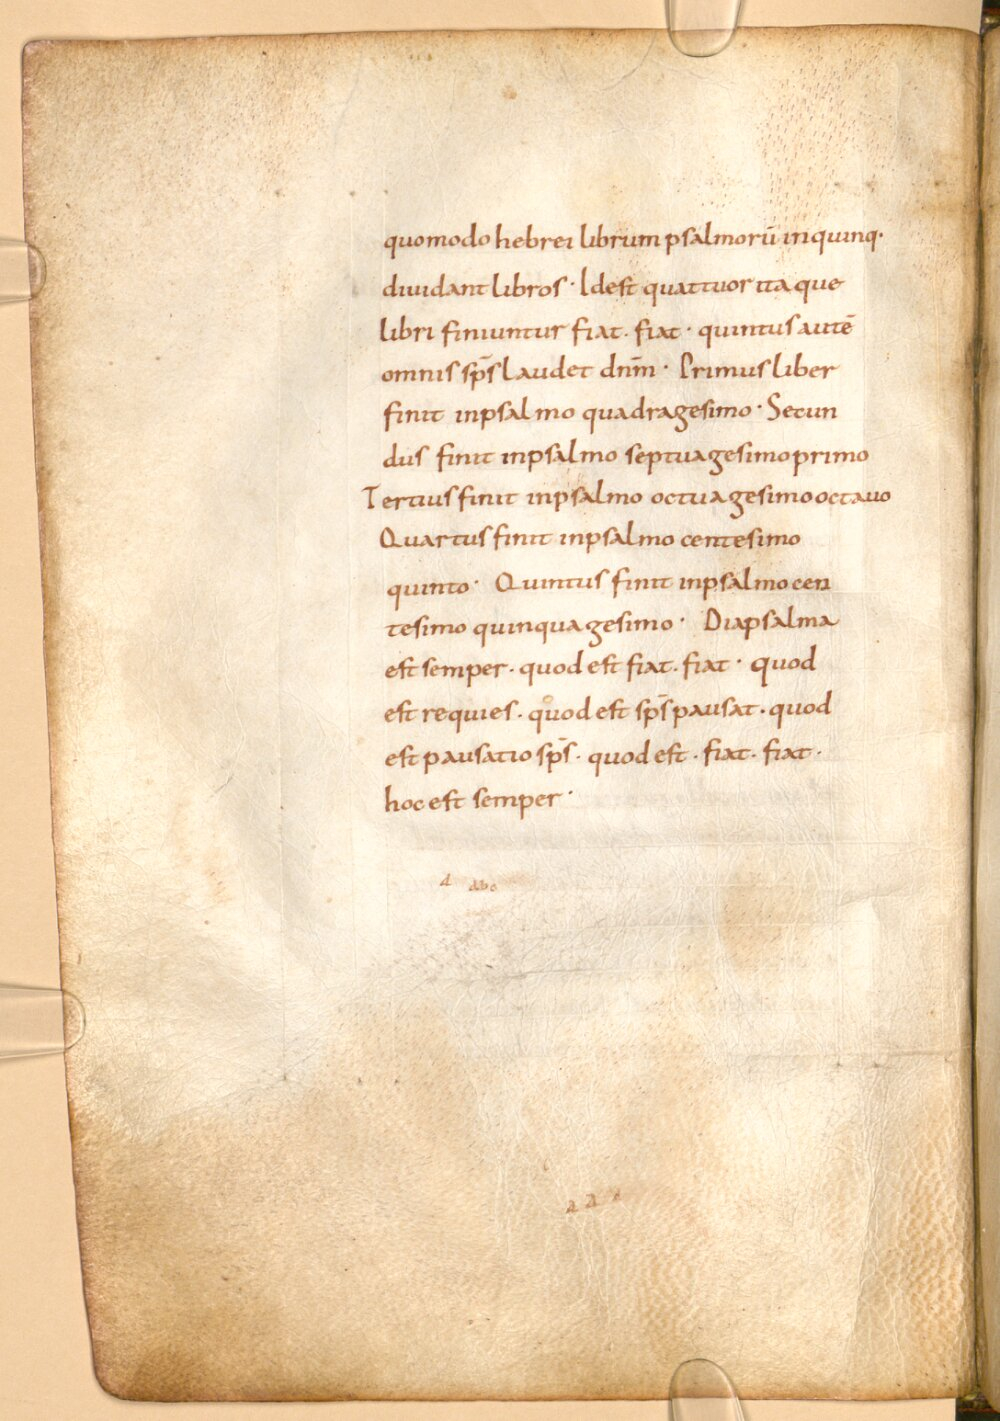 quomodo hebrei librum psalmorū in quinq·
diuidant libros · Id est quattuor ita que
libri finiuntur fiat · fiat · quintus autē
omnis sp̄s laudet dnm̄ · Primus liber
finit in psalmo quadragesimo · Secun
dus finit in psalmo septuagesimo primo
Tertius finit in psalmo octuagesimo octauo
Quartus finit in psalmo centesimo
quinto · Quintus finit in psalmo cen
tesimo quinquagesimo · Diapsalma
est semper · quod est fiat · fiat · quod
est requies · quod est sp̄s pausat · quod
est pausatio sp̄s · quod est · fiat · fiat ·
hoc est semper ·
a abc
a a a